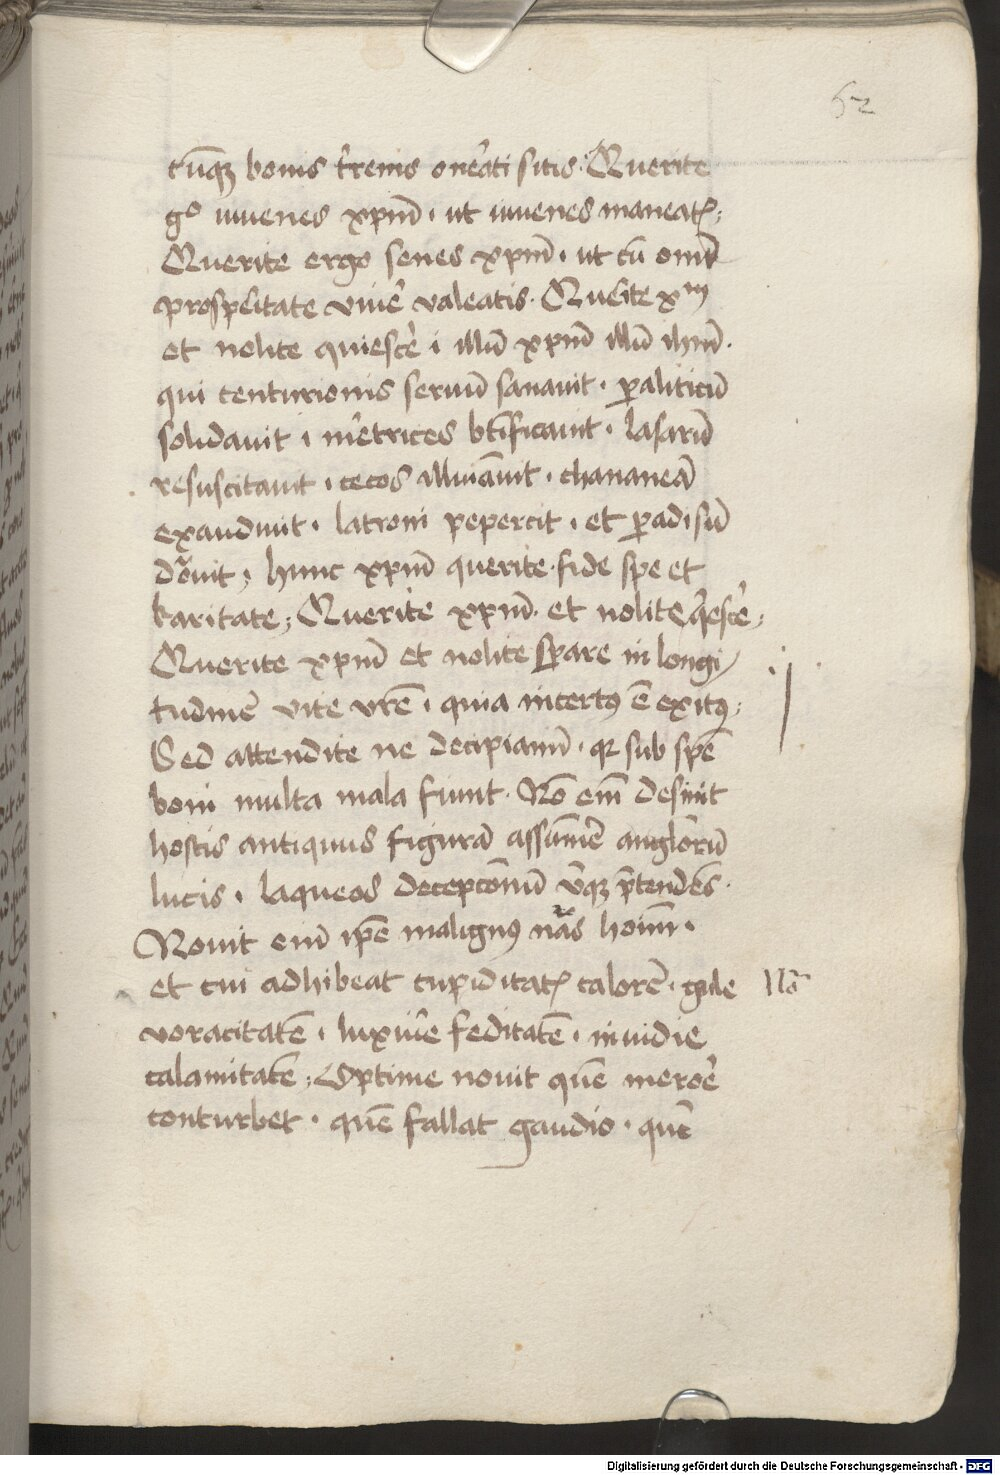 62
cu̅qꝫ bonis t̉renis on̉ati sitis. Querite
gͦ iuuenes xpm̅. ut iuuenes maneatꝭ;
Querite ergo senes xpm̅. ut cu̅ omi̅
prosꝑitate viuẻ valeatis. Quẻite xᵐ
et nolite quiescẻ i illu̅ xpm̅ illu̅ ihm̅.
qui centurionis seruu̅ sanauit. ꝑaliticu̅
solidauit i mẻtrices bt̅ificauit. lasaru̅
resuscitauit. cecos illuia̅uit. chananea̅
exaudiuit. latroni pepercit. et ꝑadisu̅
do̅uit; hunc xpm̅ querite. fide spe et
karitate; Querite xpm̅. et nolite q̉escẻ;
Querite xpm̅ et nolite sꝑare in longi
tudine̅ vite vr̅e. quia incertꝰ e̅ exitꝰ;
Sed attendite ne decipiami̅. qꝛ sub spe̅
boni multa mala fiunt. No̅ em̅ desinit
hostis antiquus figura̅ assu̅mẻ anglo̅ru̅
lucis. laqueos decepto̅nu̅ v̅qꝫ p̅tendes.
Nouit eni̅ ip̅e malignꝰ na̅s hoim̅.
et cui adhibeat cupiditatꝭ calore̅. gule
voracitate̅. luxurỉe feditate̅. inuidie
calamitate̅; Optime nouit que̅ meroẻ
conturbet. que̅ fallat gaudio. que̅
No̅
Digitalisierung gefördert durch die Deutsche Forschungsgemeinschaft - DFG